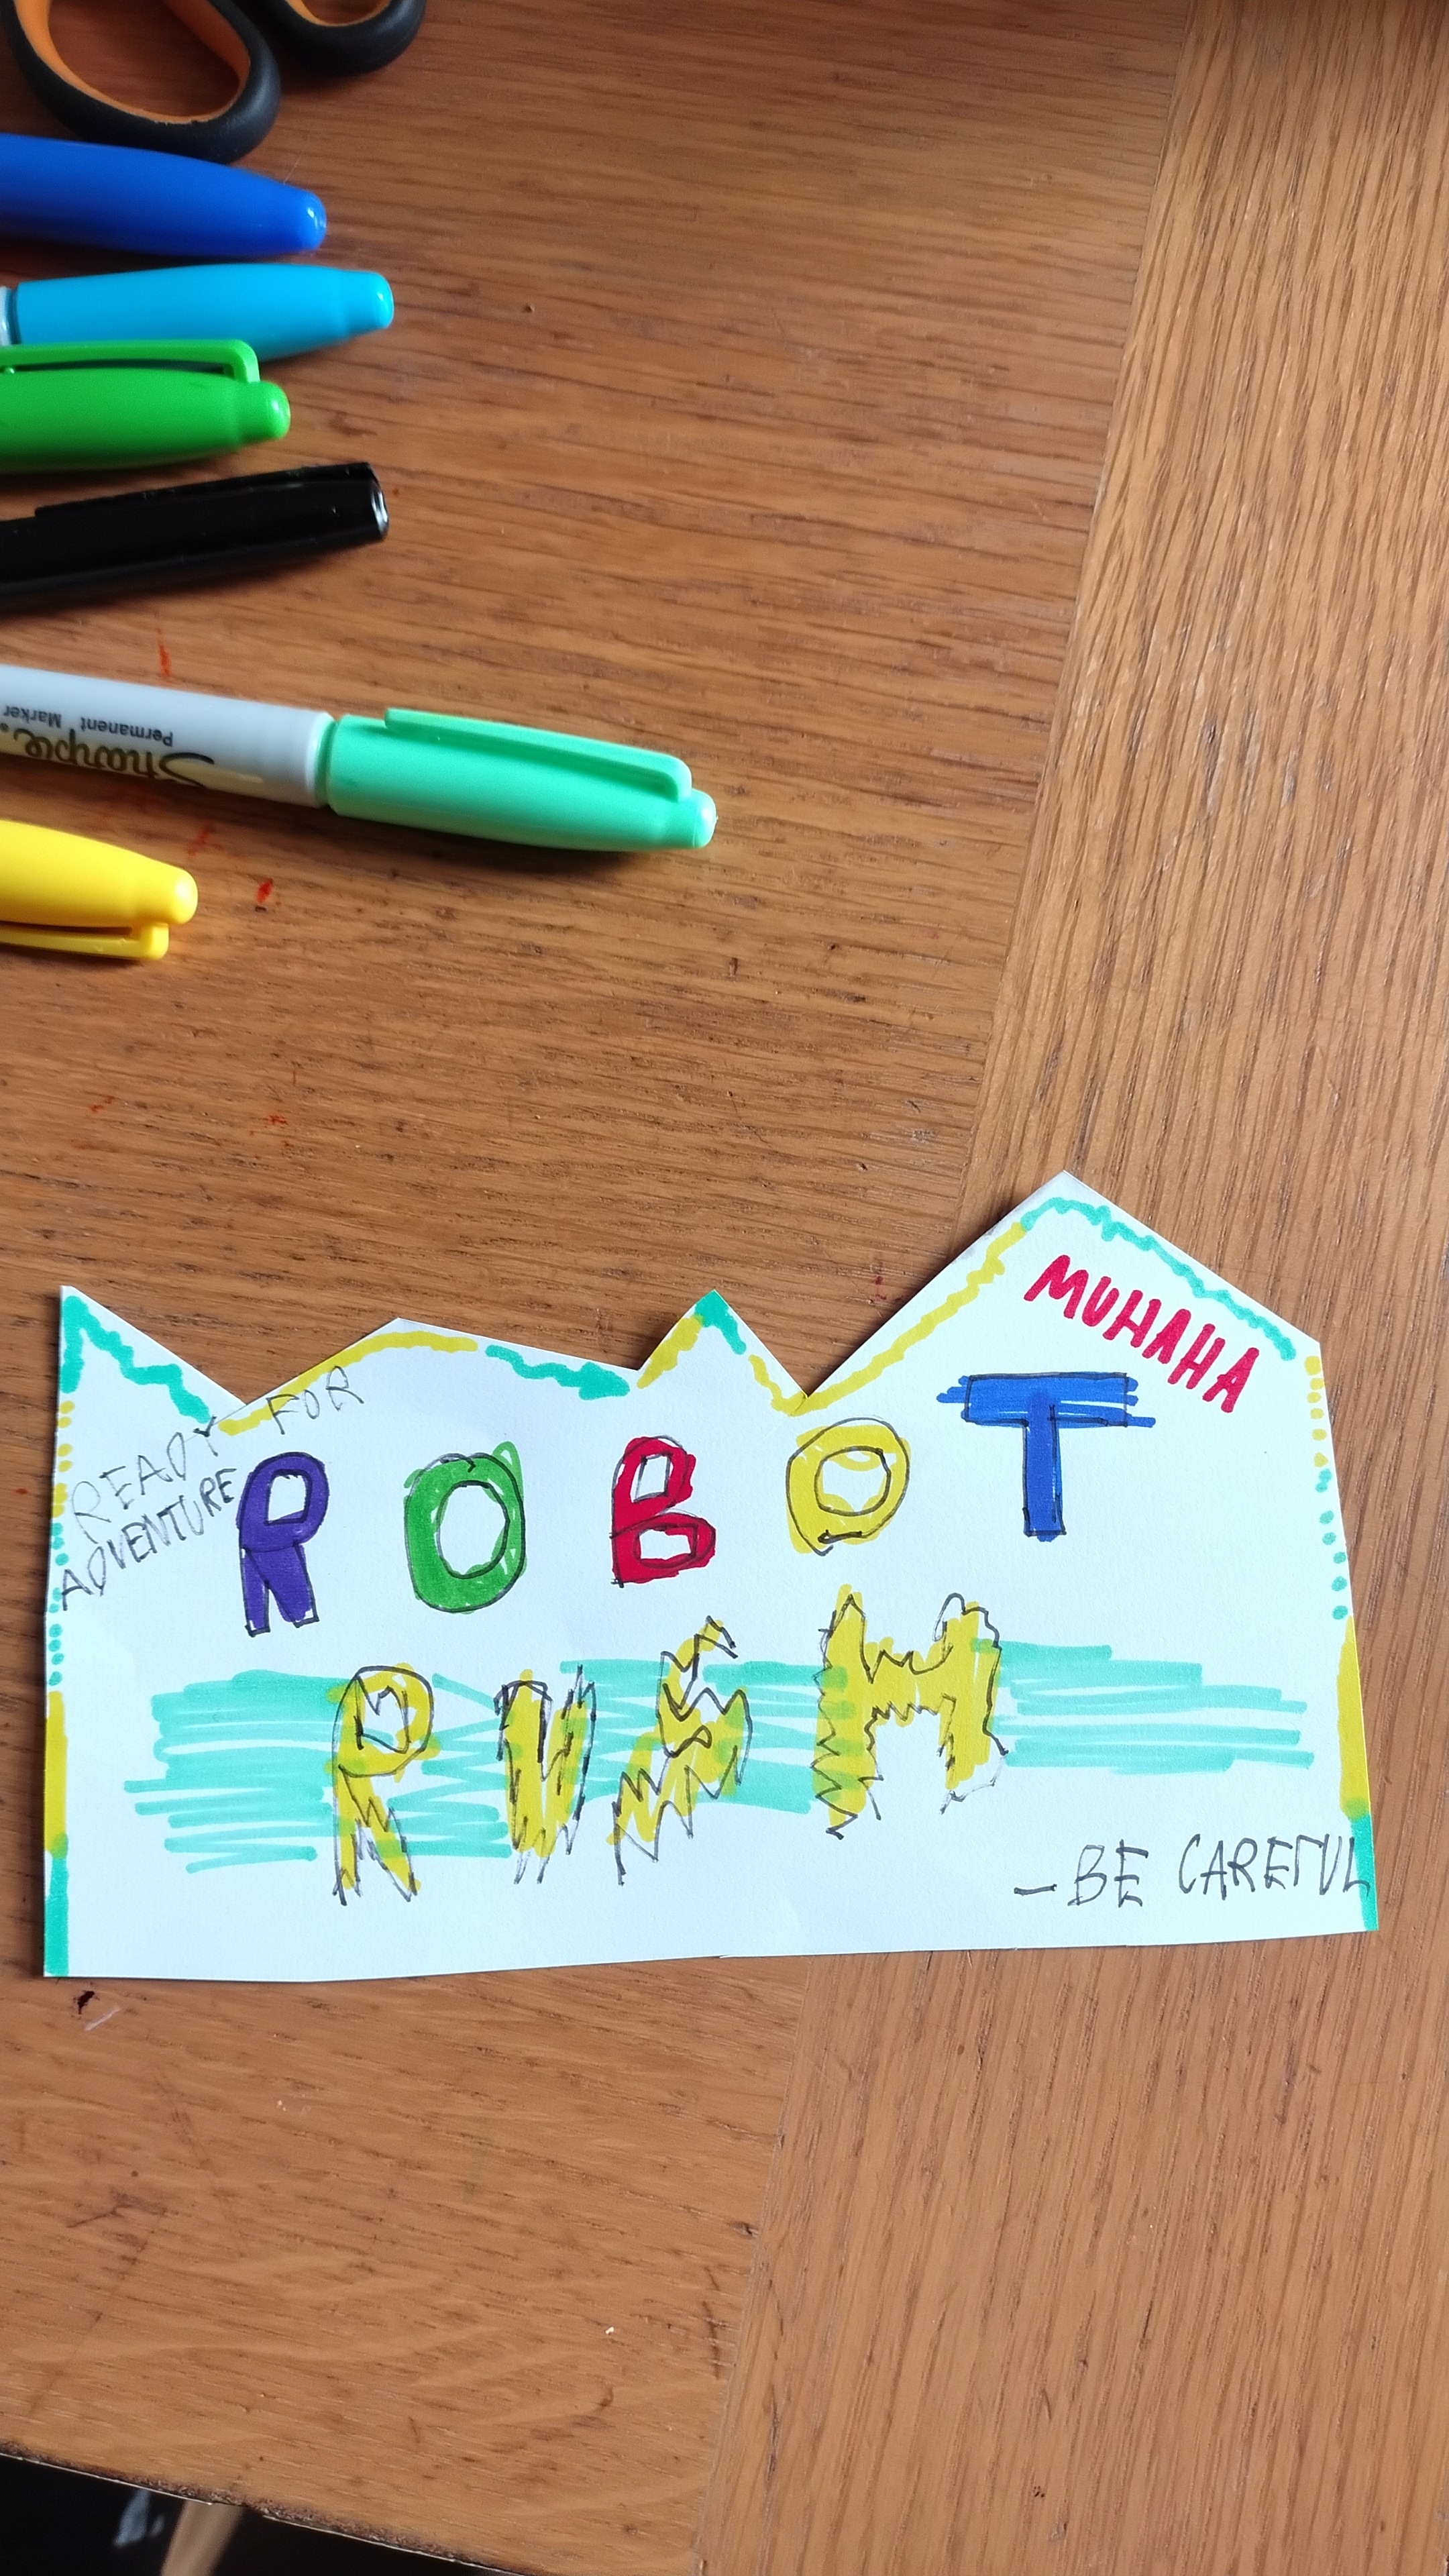 Sharpie.
Permanent Marker
MUHAHA
READY FOR
ADVENTURE
ROBOT
PUSH
-BE CAREFUL